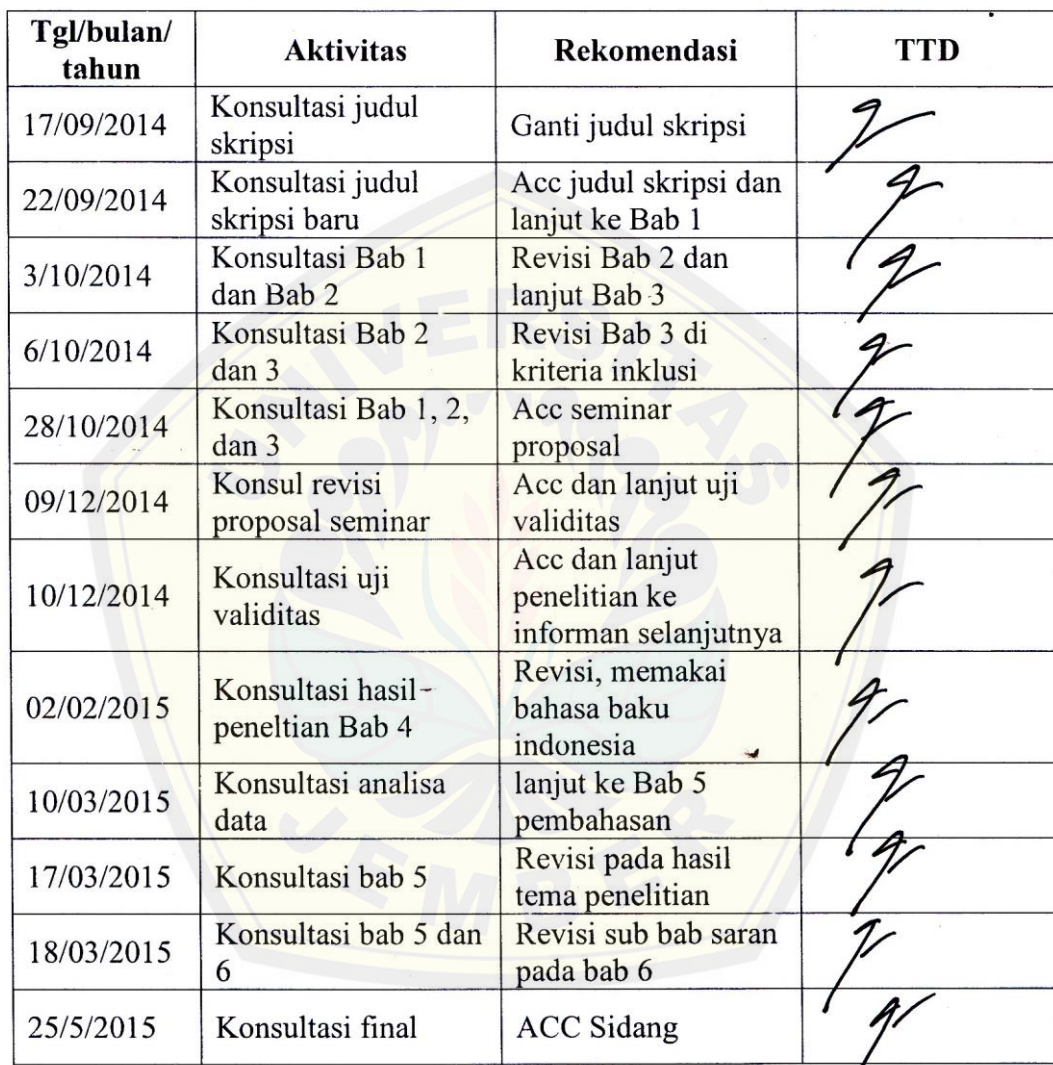 Tgl/bulan/
tahun
Aktivitas
Rekomendasi
TTD
17/09/2014
Konsultasi judul
skripsi
Ganti judul skripsi
22/09/2014
Konsultasi judul
skripsi baru
Acc judul skripsi dan
lanjut ke Bab 1
3/10/2014
Konsultasi Bab 1
dan Bab 2
Revisi Bab 2 dan
lanjut Bab 3
6/10/2014
Konsultasi Bab 2
dan 3
Revisi Bab 3 di
kriteria inklusi
28/10/2014
Konsultasi Bab 1, 2,
dan 3
Acc seminar
proposal
09/12/2014
Konsul revisi
proposal seminar
Acc dan lanjut uji
validitas
10/12/2014
Konsultasi uji
validitas
Acc dan lanjut
penelitian ke
informan selanjutnya
02/02/2015
Konsultasi hasil
peneltian Bab 4
Revisi, memakai
bahasa baku
indonesia
10/03/2015
Konsultasi analisa
data
lanjut ke Bab 5
pembahasan
17/03/2015
Konsultasi bab 5
Revisi pada hasil
tema penelitian
18/03/2015
Konsultasi bab 5 dan
6
Revisi sub bab saran
pada bab 6
25/5/2015
Konsultasi final
ACC Sidang
UNIVERSITAS
JEMBER